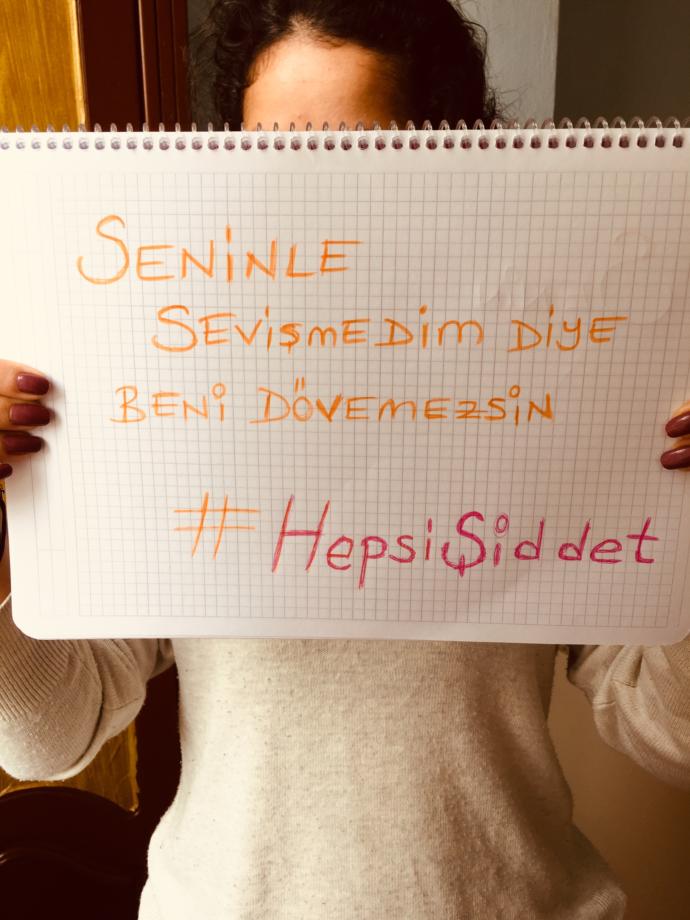 SENİNLE
SEVİŞMEDİM DİYE
BENİ DÖVEMEZSİN
#HepsiŞiddet